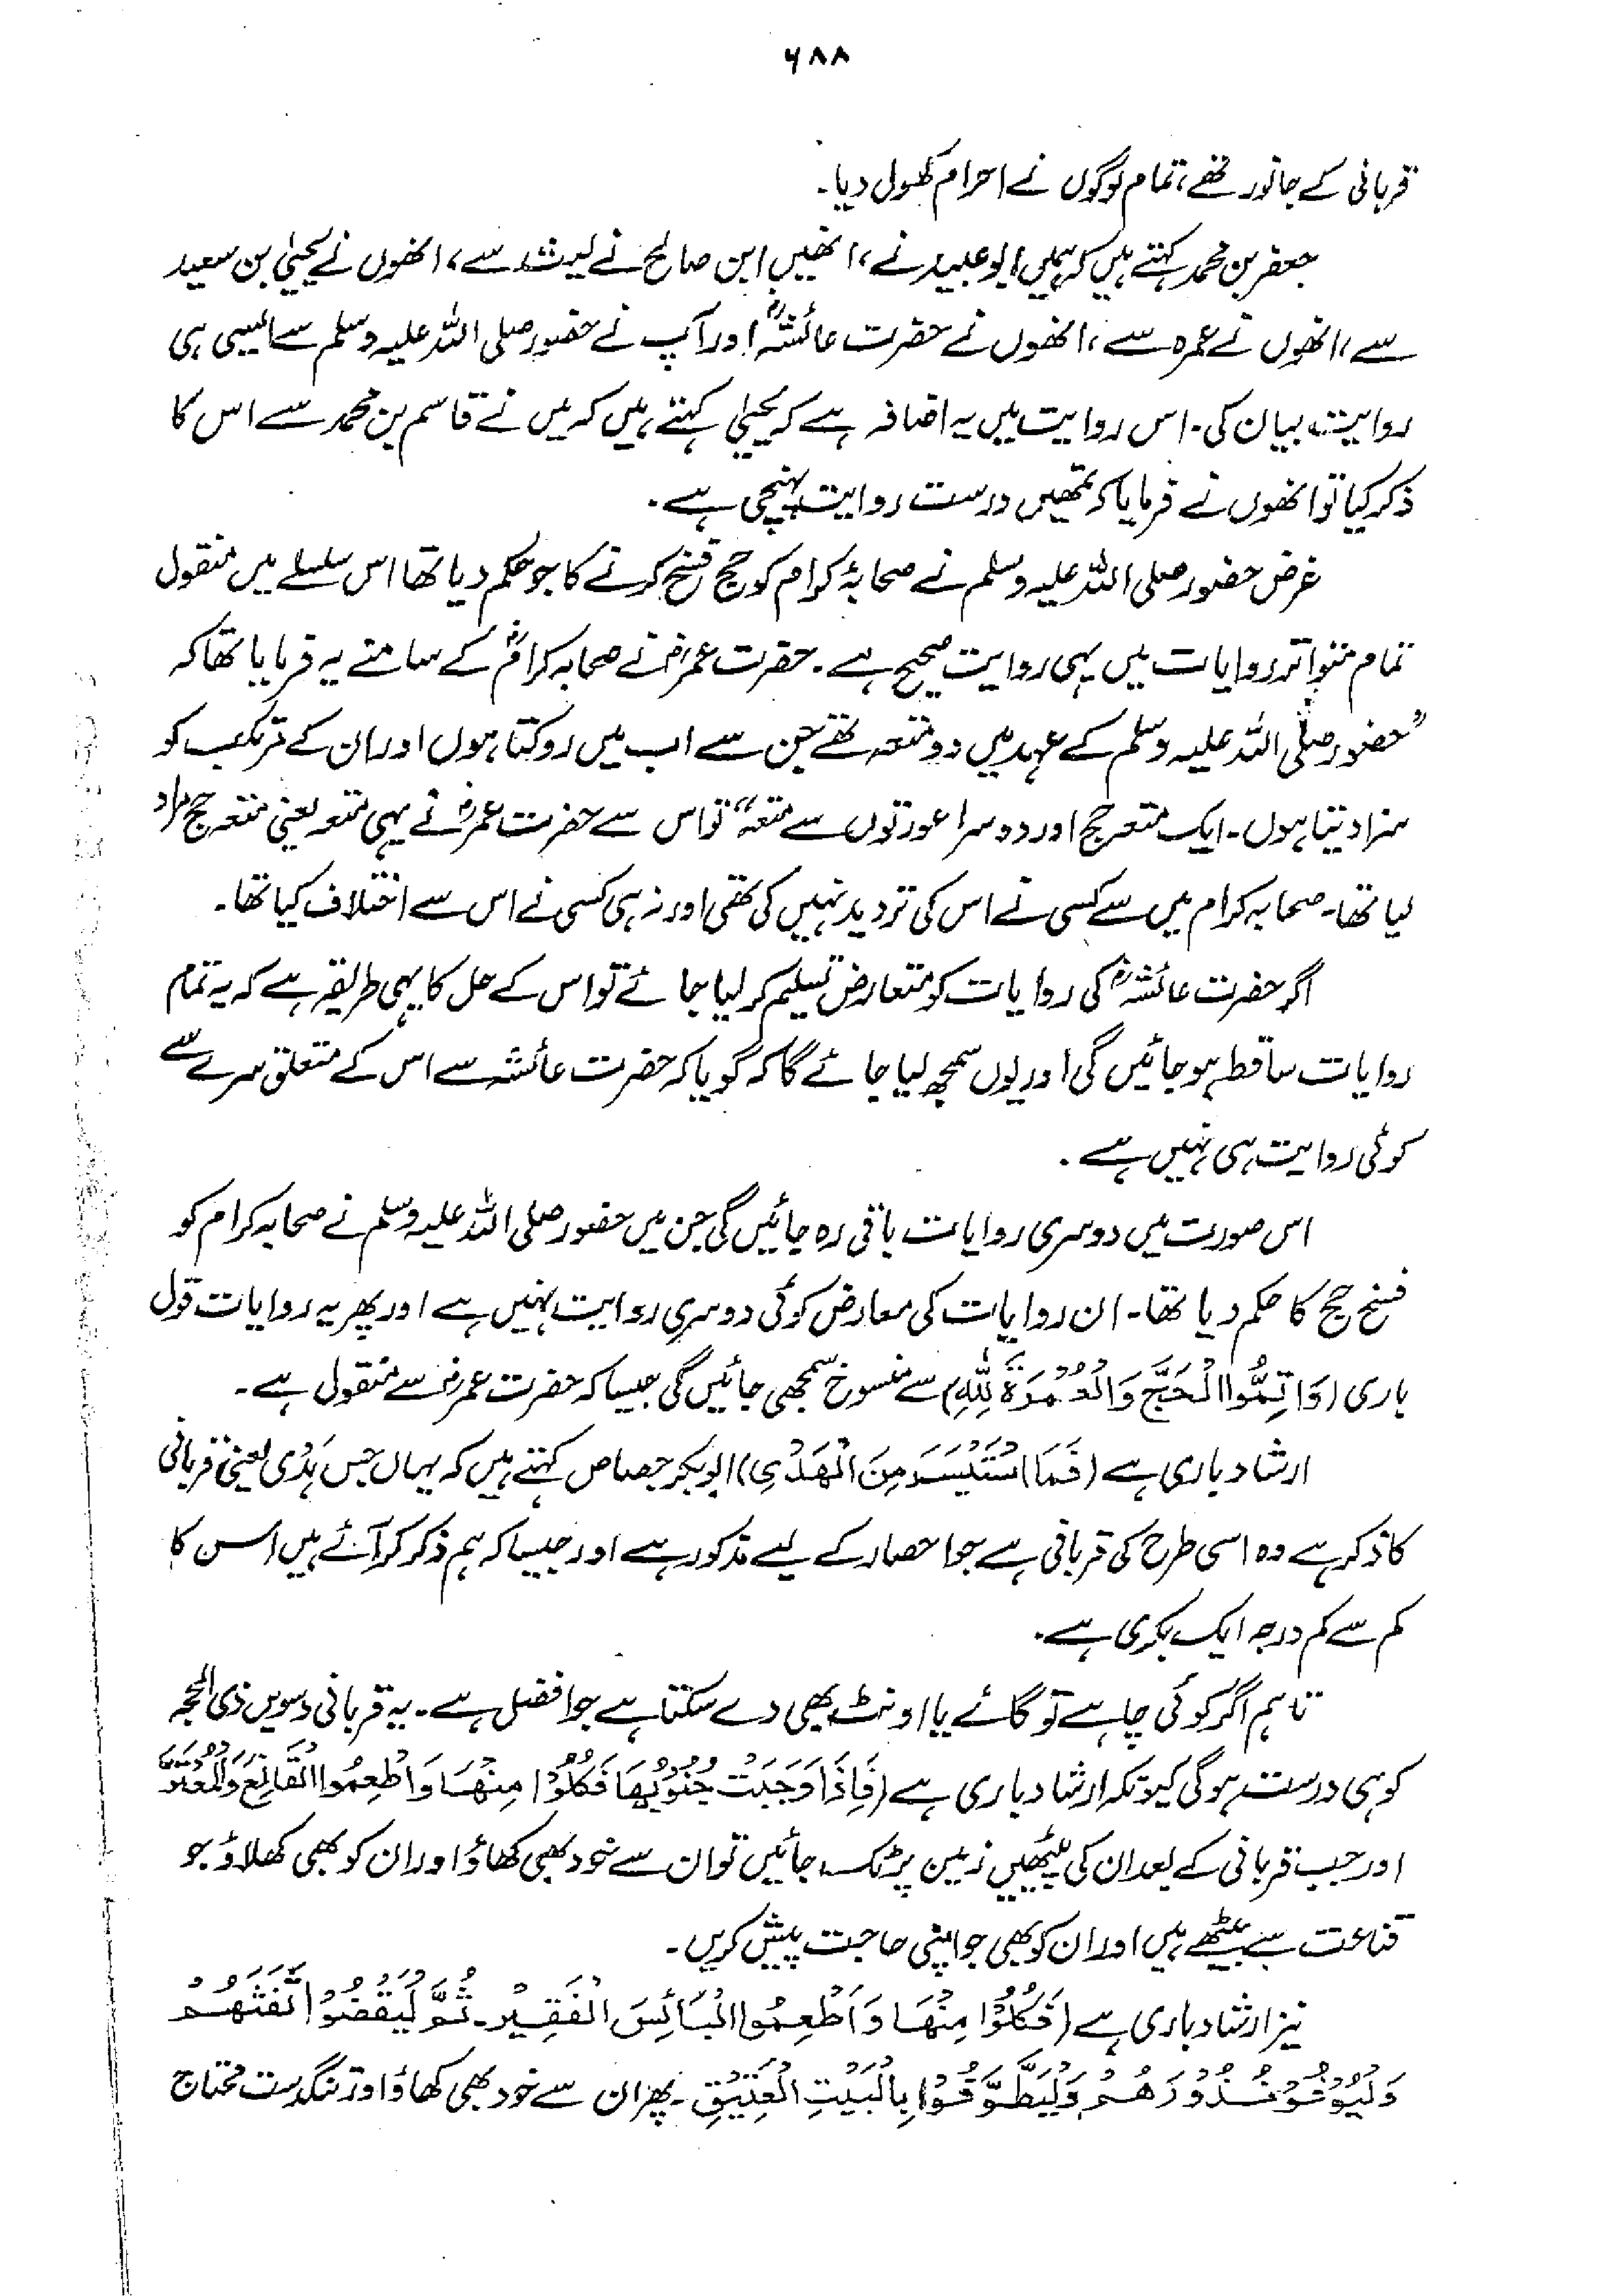 ۶۸۸
قربانی کے جانور تھے، تمام لوگوں نے احرام کھول دیا۔
جعفر بن محمد کہتے ہیں کہ ہمیں ابوعبید نے، انھیں ابن صالح نے لیث سے، انھوں نے یحییٰ بن سعید
سے، انھوں نے عمرہ سے، انھوں نے حضرت عائشہؓ اور آپ نے حضور صلی اللہ علیہ وسلم سے ایسی ہی
روایت بیان کی۔ اس روایت میں یہ اضافہ ہے کہ یحییٰ کہتے ہیں کہ میں نے قاسم بن محمد سے اس کا
ذکر کیا تو انھوں نے فرمایا کہ تمھیں درست روایت پہنچی ہے۔
غرض حضور صلی اللہ علیہ وسلم نے صحابۂ کرام کو حج فسخ کرنے کا جو حکم دیا تھا اس سلسلے میں منقول
تمام متواتر روایات میں یہی روایت صحیح ہے۔ حضرت عمرؓ نے صحابہ کرامؓ کے سامنے یہ فرمایا تھا کہ
"حضور صلی اللہ علیہ وسلم کے عہد میں دو متعہ تھے جن سے اب میں روکتا ہوں اور ان کے مرتکب کو
سزا دیتا ہوں۔ ایک متعہ حج اور دوسرا عورتوں سے متعہ" تو اس سے حضرت عمرؓ نے یہی متعہ یعنی متعہ حج مراد
لیا تھا۔ صحابہ کرام میں سے کسی نے اس کی تردید نہیں کی تھی اور نہ ہی کسی نے اس سے اختلاف کیا تھا۔
اگر حضرت عائشہؓ کی روایات کو متعارض تسلیم کر لیا جائے تو اس کے حل کا یہی طریقہ ہے کہ یہ تمام
روایات ساقط ہو جائیں گی اور یوں سمجھ لیا جائے گا کہ گویا کہ حضرت عائشہ سے اس کے متعلق سرے سے
کوئی روایت ہی نہیں ہے۔
اس صورت میں دوسری روایات باقی رہ جائیں گی جن میں حضور صلی اللہ علیہ وسلم نے صحابہ کرام کو
فسخ حج کا حکم دیا تھا۔ ان روایات کی معارض کوئی دوسری روایت نہیں ہے اور پھر یہ روایات قول
باری (وَاَتِمُّوا الْحَجَّ وَالْعُمْرَةَ لِلّٰهِ) سے منسوخ سمجھی جائیں گی جیسا کہ حضرت عمرؓ سے منقول ہے۔
ارشاد باری ہے (فَمَا اسْتَيْسَرَ مِنَ الْهَدْيِ) ابوبکر جصاص کہتے ہیں کہ یہاں جس ہَدْی یعنی قربانی
کا ذکر ہے وہ اسی طرح کی قربانی ہے جو احصار کے لیے مذکور ہے اور جیسا کہ ہم ذکر کر آئے ہیں اس کا
کم سے کم درجہ ایک بکری ہے۔
تاہم اگر کوئی چاہے تو گائے یا اونٹ بھی دے سکتا ہے جو افضل ہے۔ یہ قربانی دسویں ذی الحجہ
کو ہی درست ہوگی کیونکہ ارشاد باری ہے (فَاِذَا وَجَبَتْ جُنُوْبُهَا فَكُلُوْا مِنْهَا وَاَطْعِمُوا الْقَانِعَ وَالْمُعْتَرَّ
اور جب قربانی کے بعد ان کی پیٹھیں زمین پر ٹک جائیں تو ان سے خود بھی کھاؤ اور ان کو بھی کھلاؤ جو
قناعت سے بیٹھے ہیں اور ان کو بھی جو اپنی حاجت پیش کریں۔
نیز ارشاد باری ہے (فَكُلُوْا مِنْهَا وَاَطْعِمُوا الْبَائِسَ الْفَقِيْرَ۔ ثُمَّ لْيَقْضُوْا تَفَثَهُمْ
وَلْيُوْفُوْا نُذُوْرَهُمْ وَلْيَطَّوَّفُوْا بِالْبَيْتِ الْعَتِيْقِ۔ پھر ان سے خود بھی کھاؤ اور تنگدست محتاج